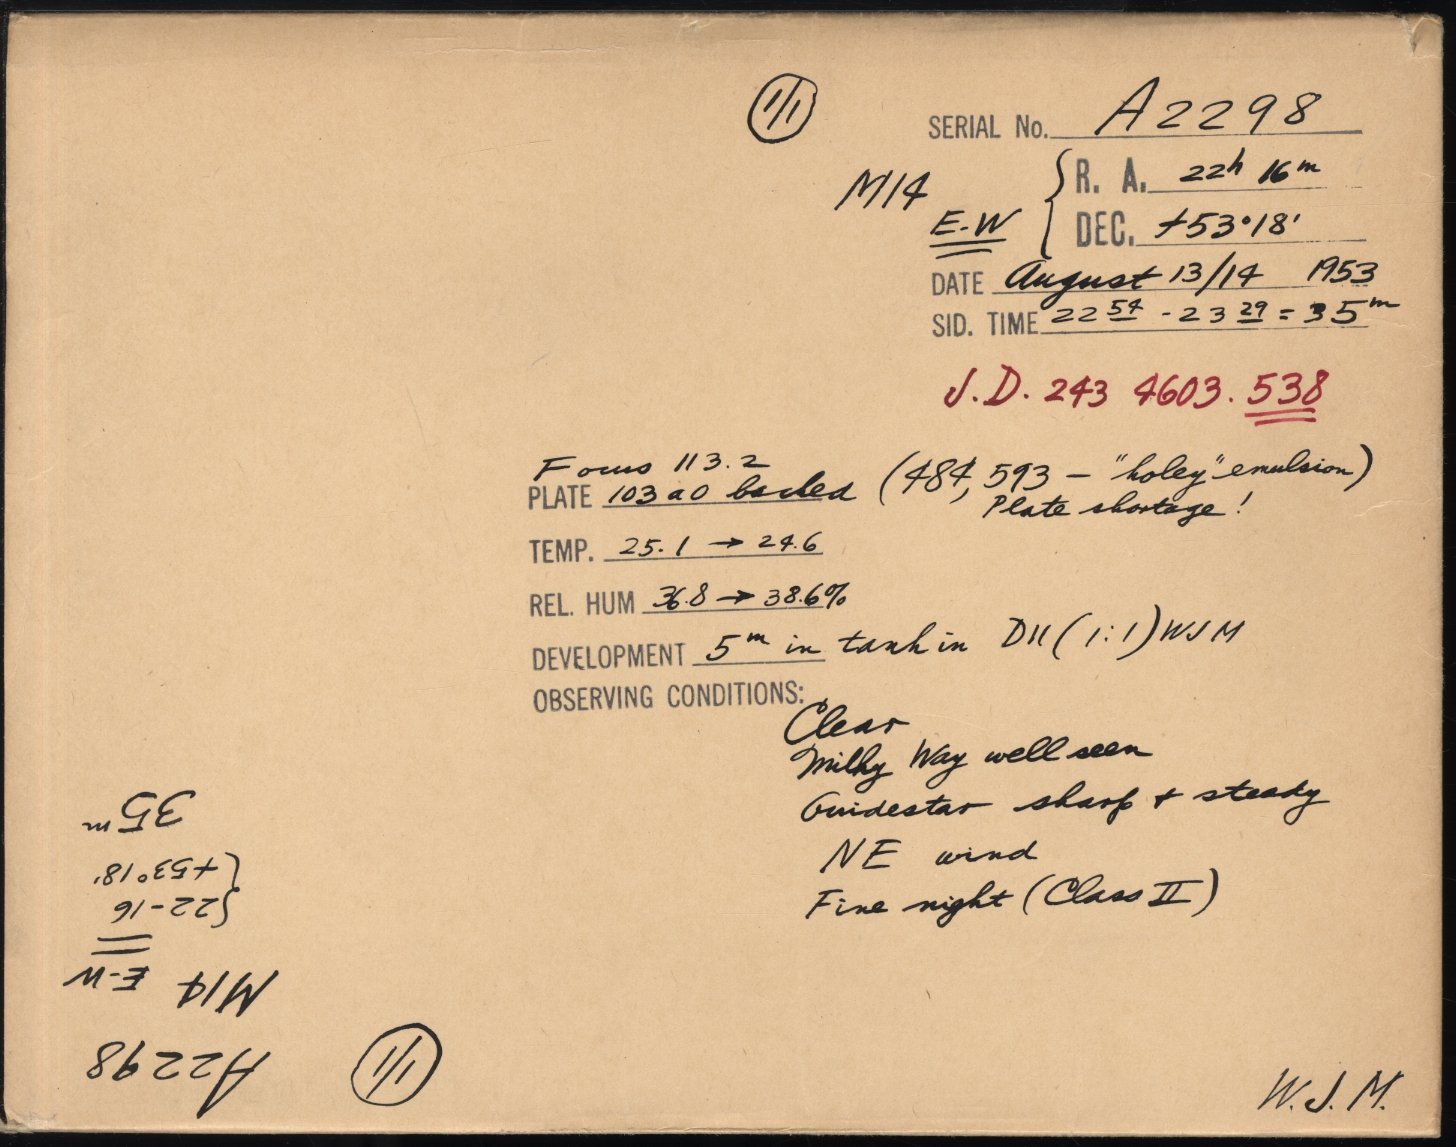 1/1
SERIAL No. A2298
M14
E-W
R. A. 22h 16m
DEC. +53°18'
DATE August 13/14 1953
SID. TIME 22 54 - 23 29 = 35m
J.D. 243 4603.538
Focus 113.2
PLATE 103 a O backed (484, 593 - "holey" emulsion)
Plate shortage!
TEMP. 25.1 → 24.6
REL. HUM 36.8 → 38.6%
DEVELOPMENT 5m in tank in D11 (1:1) WJM
OBSERVING CONDITIONS:
Clear
Milky Way well seen
Guidestar sharp + steady
NE wind
Fine night (Class II)
W.J.M.
1/1
A2298
M14 E-W
{22-16
{+53°18'
35m